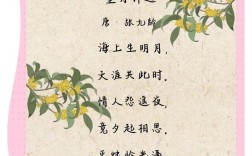 唐·张九龄
海上生明月，
天涯共此时。
情人怨遥夜，
竟夕起相思。